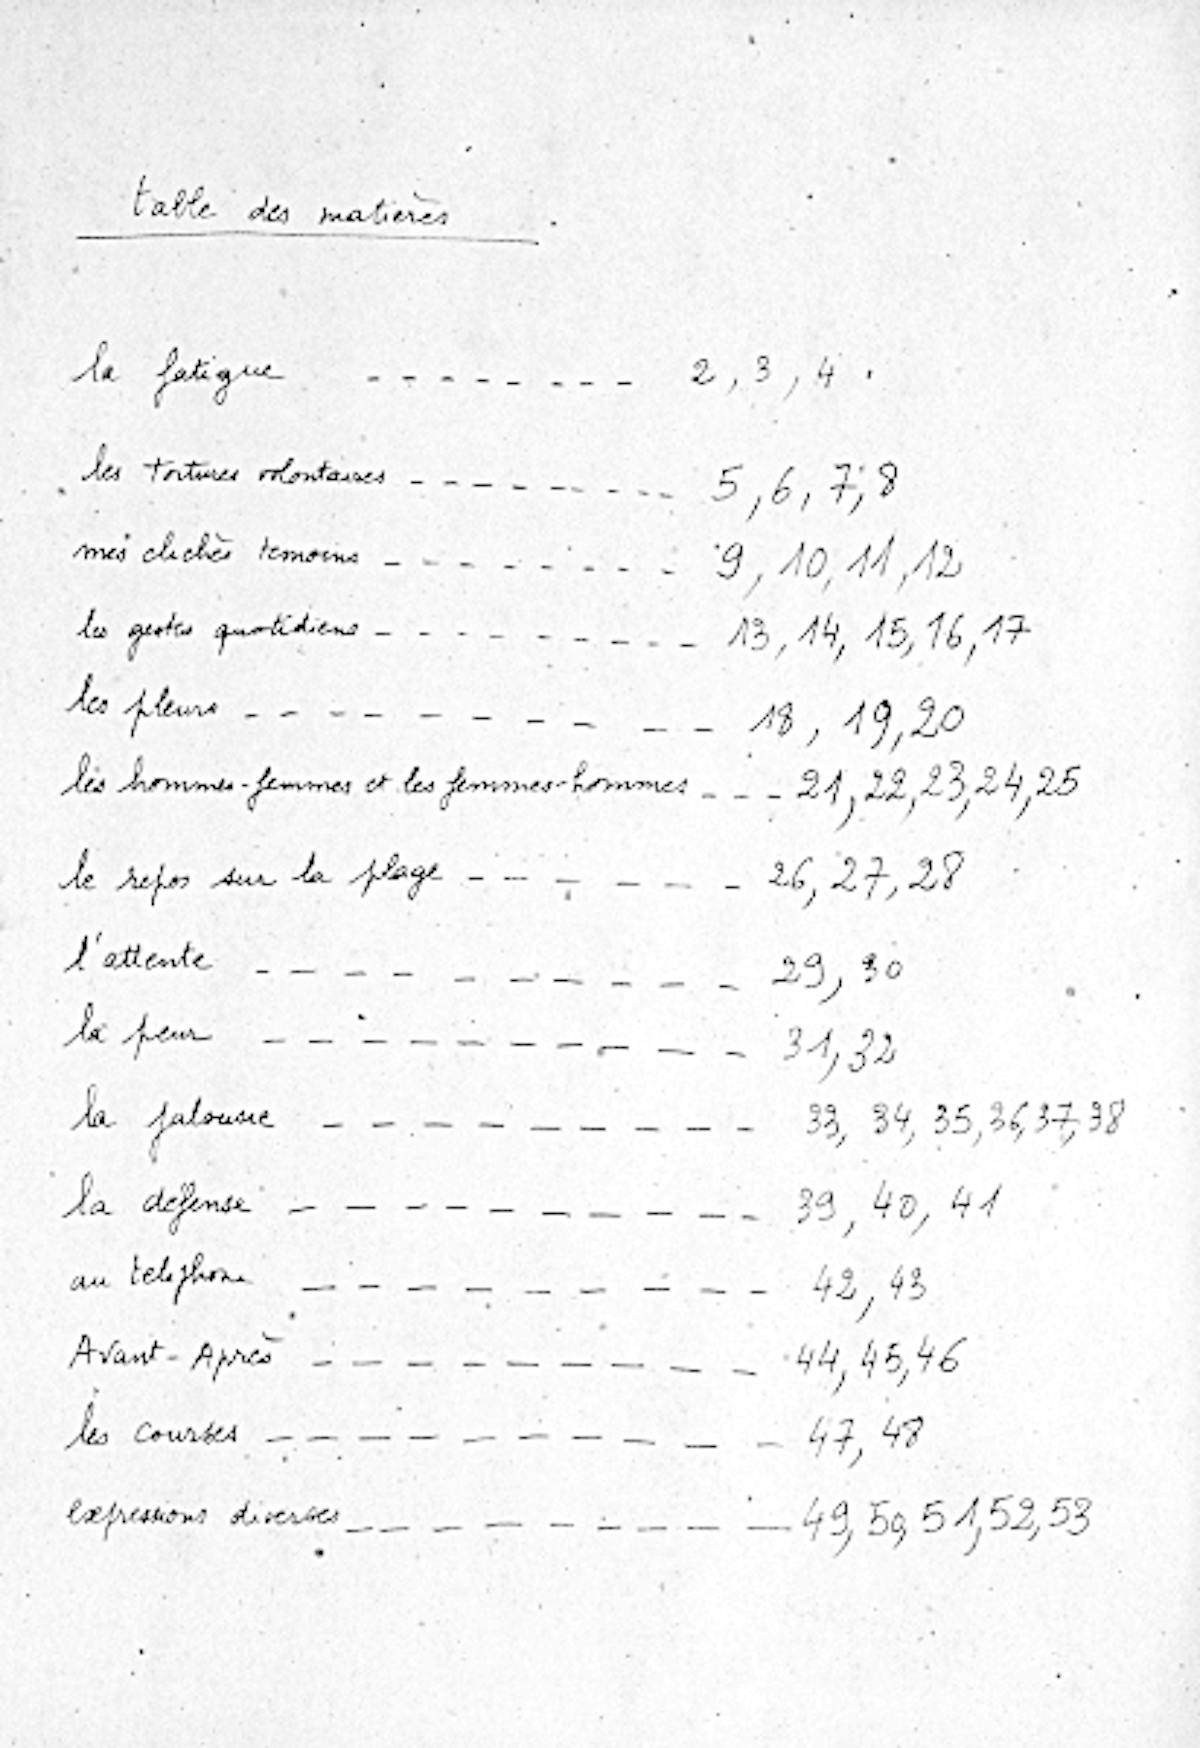 table des matières
la fatigue - - - - - - - - - 2, 3, 4.
les tortures volontaires - - - - - - - - - 5, 6, 7, 8
mes clichés temoins - - - - - - - - - 9, 10, 11, 12
les gestes quotidiens - - - - - - - - - - 13, 14, 15, 16, 17
les pleurs - - - - - - - - - - - - 18, 19, 20
les hommes-femmes et les femmes-hommes - - - 21, 22, 23, 24, 25
le repos sur la plage - - - - - - - 26, 27, 28
l'attente - - - - - - - - - - 29, 30
la peur - - - - - - - - - - - 31, 32
la jalousie - - - - - - - - - - 33, 34, 35, 36, 37, 38
la défense - - - - - - - - - - - 39, 40, 41
au telephone - - - - - - - - - - 42, 43
Avant-Après - - - - - - - - - - - 44, 45, 46
les courses - - - - - - - - - - - 47, 48
expressions diverses - - - - - - - - - - 49, 50, 51, 52, 53